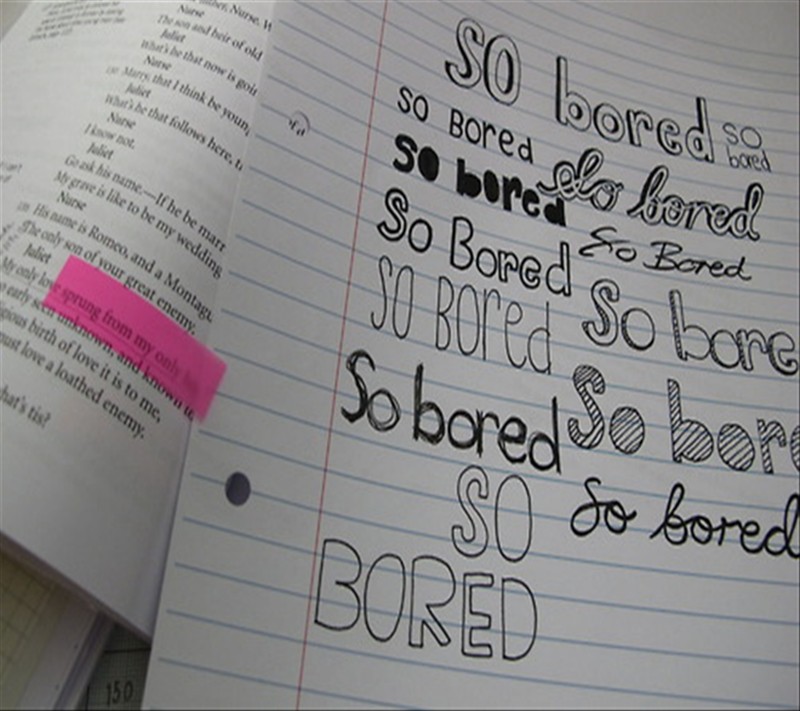 Nurse
The son and heir of old
Juliet
What's he that now is goin
Nurse
Marry, that I think be youn
Juliet
What's he that follows here, t
Nurse
I know not.
Juliet
Go ask his name.—If he be marr
My grave is like to be my wedding
Nurse
His name is Romeo, and a Montagu
The only son of your great enemy.
Juliet
My only love sprung from my only
early seen unknown, and known
birth of love it is to me,
must love a loathed enemy.
hat's tis?
SO bored so bored
SO BORed So bored
So bored So Bored
So Bored So bore
SO BORed So bore
So bored so bored
SO
BORED
150